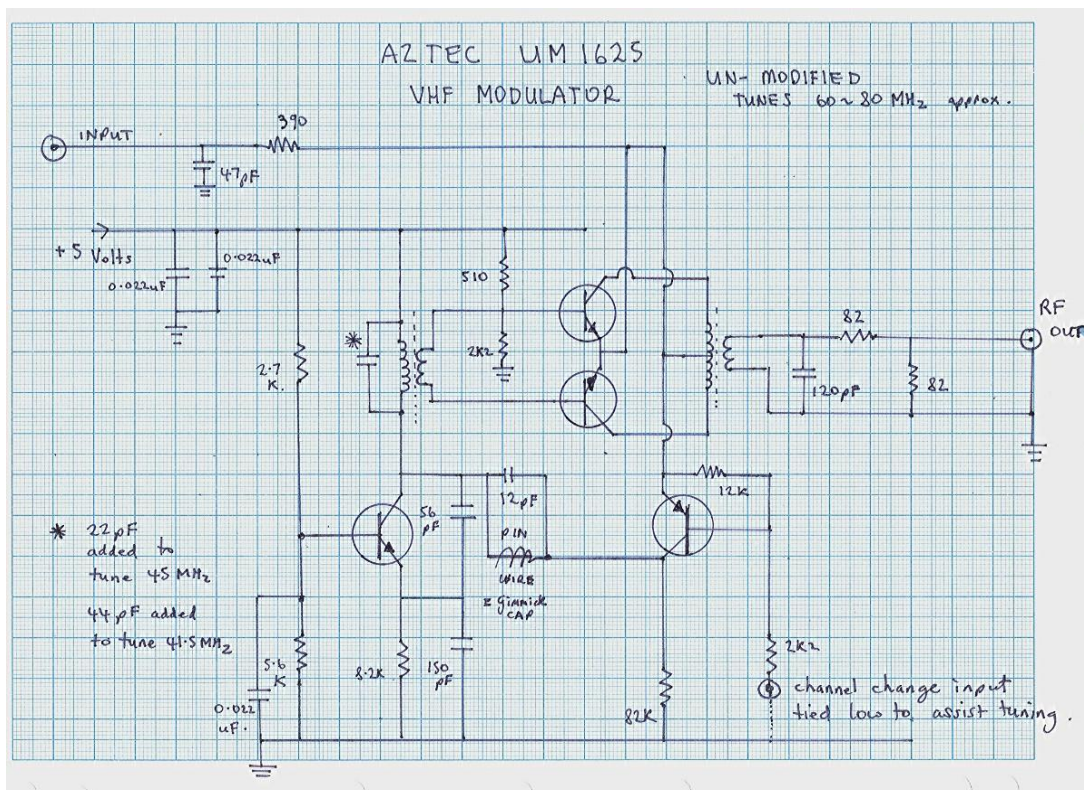 AZTEC UM1625
VHF MODULATOR
UN-MODIFIED
TUNES 60~80 MHz approx.
INPUT
390
47pF
+5 Volts
0.022uF
0.022uF
510
2K2
2.7
K.
*
82
RF
OUT
120pF
82
12K
56
pF
12pF
PIN
WIRE
= Gimmick
CAP
* 22pF
added to
tune 45 MHz
44 pF added
to tune 41.5MHz
5.6
K
0.022
uF.
8.2K
150
pF
82K
2K2
channel change input
tied low to assist tuning.